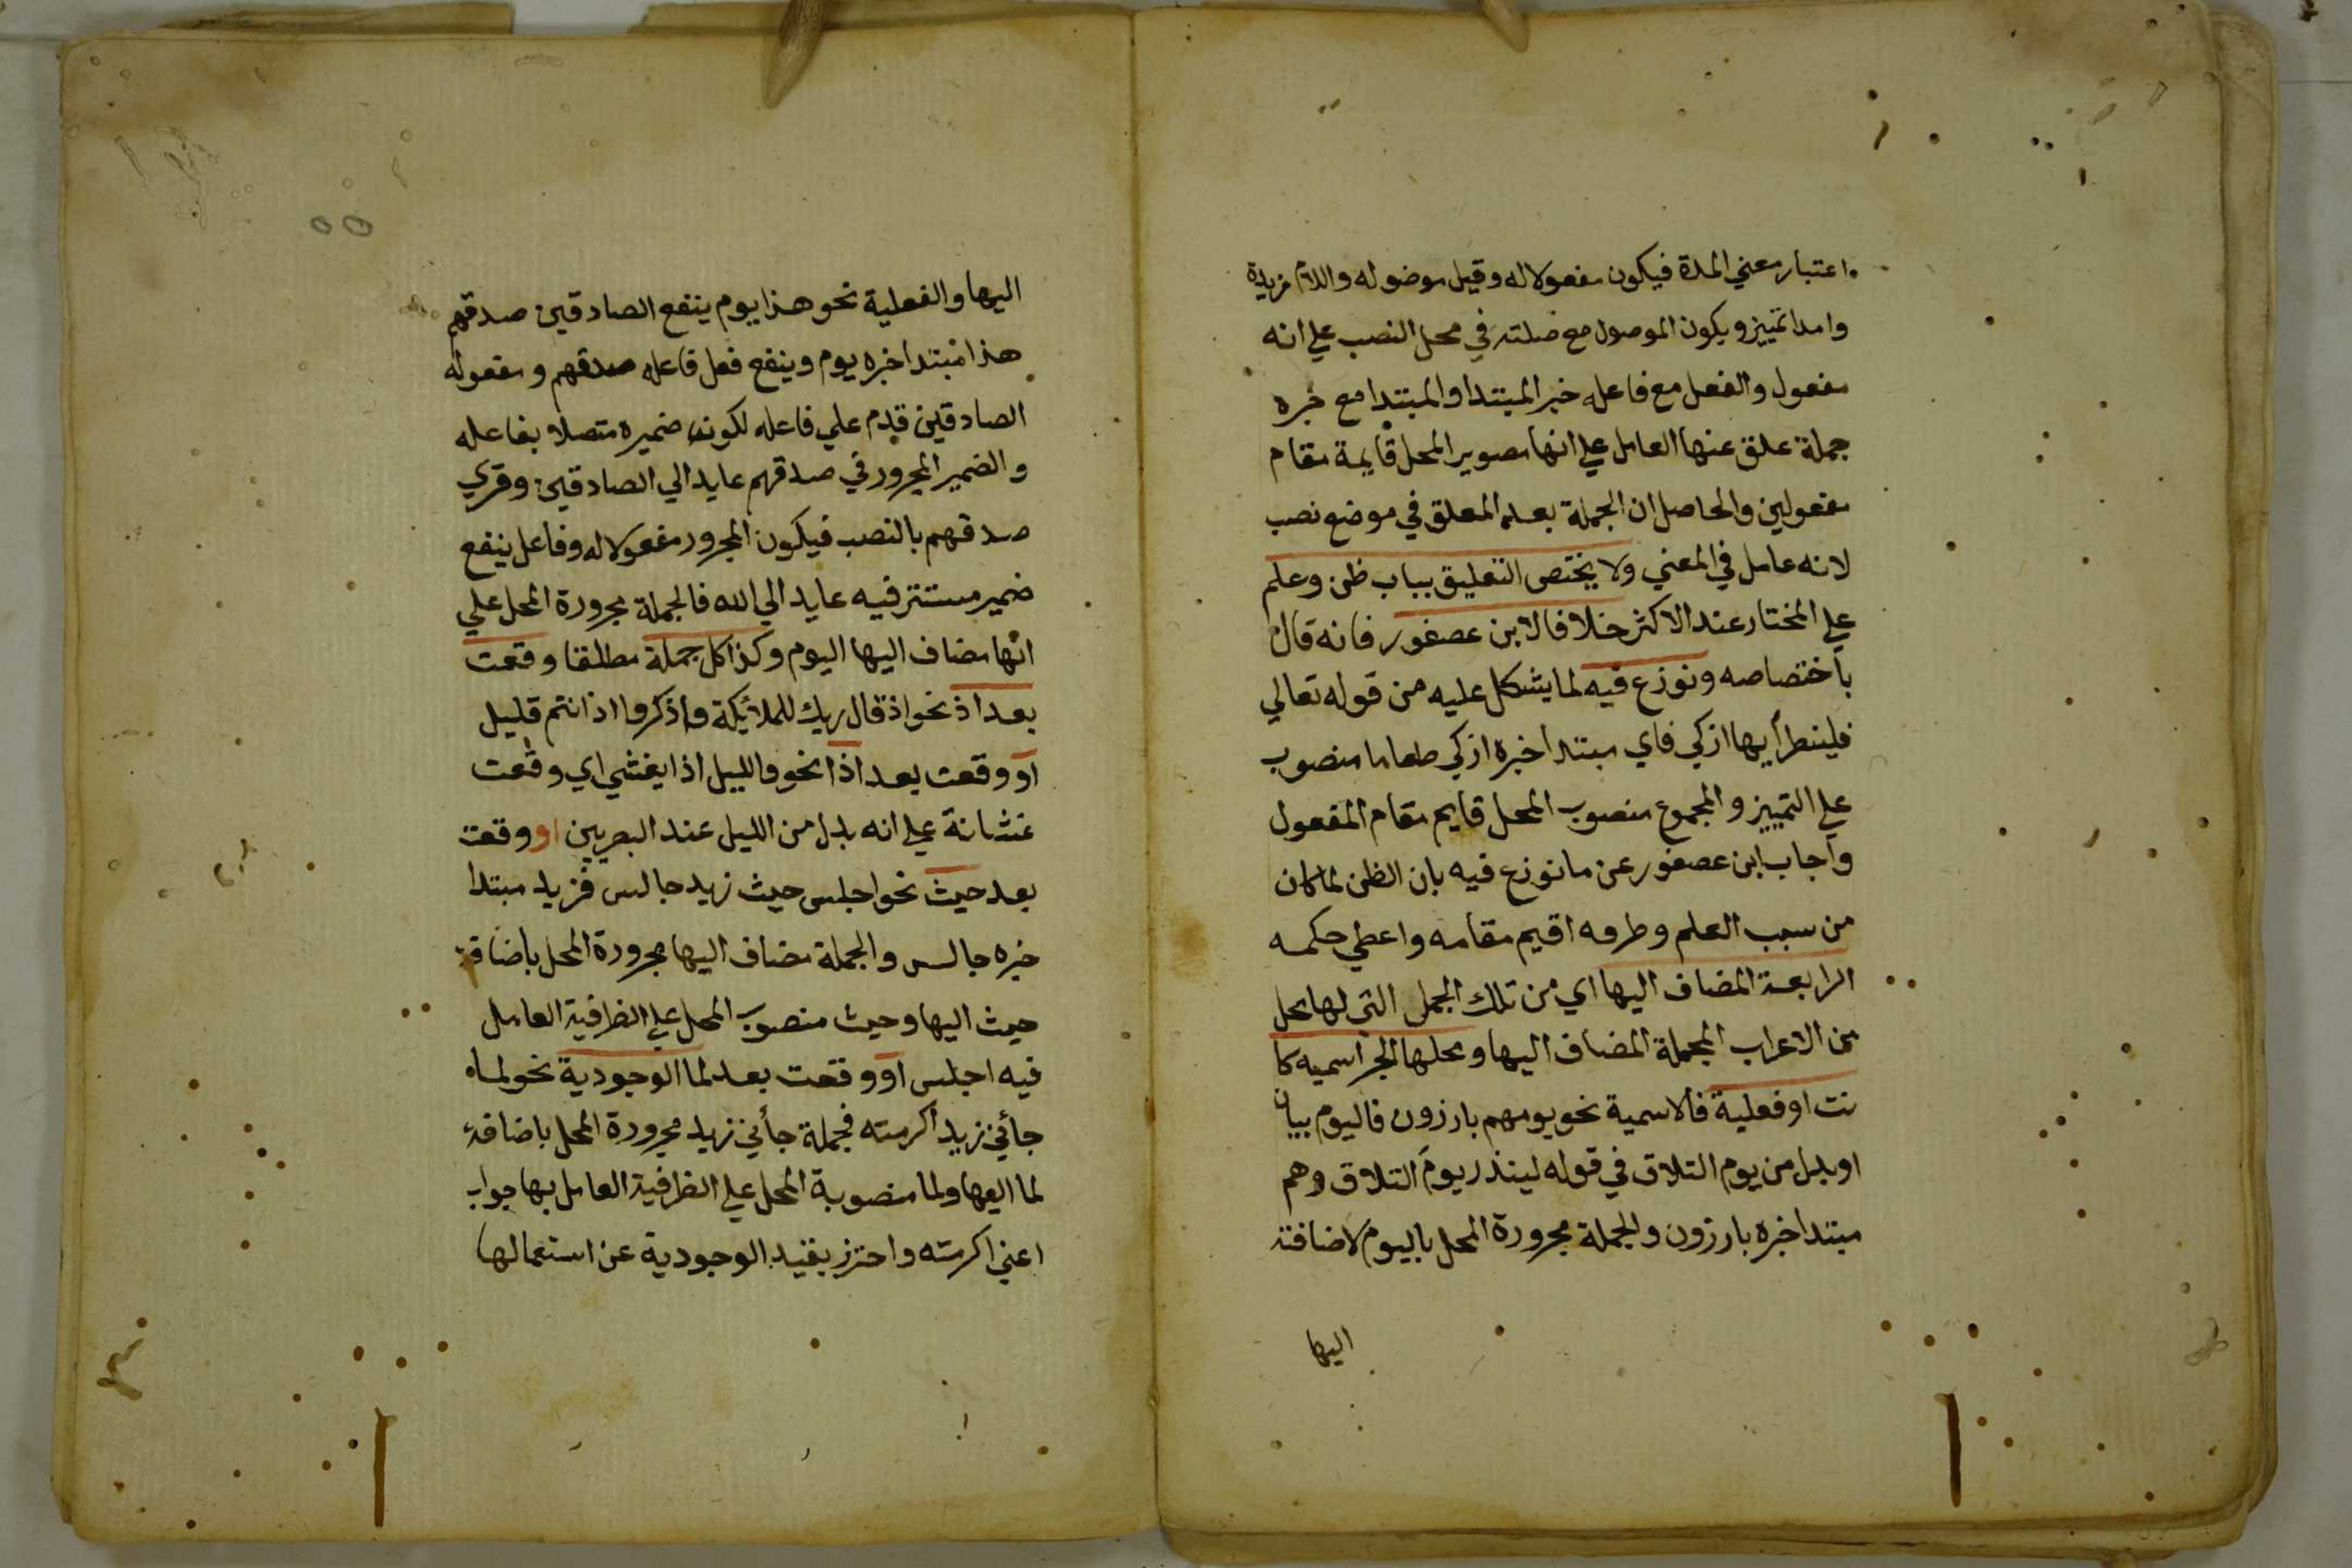 اعتبار معني المدة فيكون مفعولا له وقيل موضوله واللام مزيدة
وامدا تمييز ويكون الموصول مع صلته في محل النصب علي انه
مفعول والفعل مع فاعله خبر المبتدا والمبتدا مع خبره
جملة علق عنها العامل علي انها مصوير المحل قايمة مقام
مفعولين والحاصل ان الجملة بعد المعلق في موضع نصب
لانه عامل في المعني ولا يختص التعليق بباب ظن وعلم
علي المختار عند الاكثر خلافا لابن عصفور فانه قال
باختصاصه ونوزع فيه لما يشكل عليه من قوله تعالي
فلينظر أيها ازكي فاي مبتدا خبره ازكي طعاما منصوب
علي التمييز والمجموع منصوب المحل قايم مقام المفعول
وأجاب ابن عصفور عن ما نوزع فيه بان الظن لما كان
من سبب العلم وطرفه اقيم مقامه واعطي حكمه
الرابعة المضاف اليها اي من تلك الجمل التي لها محل
من الاعراب الجملة المضاف اليها ومحلها الجر اسميه كا
نت او فعلية فالاسمية نحو يومهم بارزون فاليوم بيان
او بدل من يوم التلاق في قوله لينذر يوم التلاق وهم
مبتدا خبره بارزون والجملة مجرورة المحل باليوم لاضافته
اليها
٥٥
اليها والفعلية نحو هذا يوم ينفع الصادقين صدقهم
هذا مبتدا خبره يوم وينفع فعل فاعله صدقهم ومفعوله
الصادقين قدم علي فاعله لكونه ضميره متصلا بفاعله
والضمير المجرور في صدقهم عايد الي الصادقين وقري
صدقهم بالنصب فيكون المجرور مفعولا له وفاعل ينفع
ضمير مستتر فيه عايد الي الله فالجملة مجرورة المحل علي
انها مضاف اليها اليوم وكذا كل جملة مطلقا وقعت
بعد اذ نحو اذ قال ربك للملائكة واذكروا اذ انتم قليل
او وقعت بعد اذا نحو والليل اذا يغشي اي وقعت
غشانة علي انه بدل من الليل عند البصريين او وقعت
بعد حيث نحو اجلس حيث زيد جالس فزيد مبتدا
خبره جالس والجملة مضاف اليها مجرورة المحل باضافة
حيث اليها وحيث منصوب المحل علي الظرفية العامل
فيه اجلس او وقعت بعد لما الوجودية نحو لما
جائني زيد اكرمته فجملة جأني زيد مجرورة المحل باضافة
لما اليها ولما منصوبة المحل علي الظرفية العامل بها جواب
اعني اكرمته واحترز بقيد الوجودية عن استعمالها